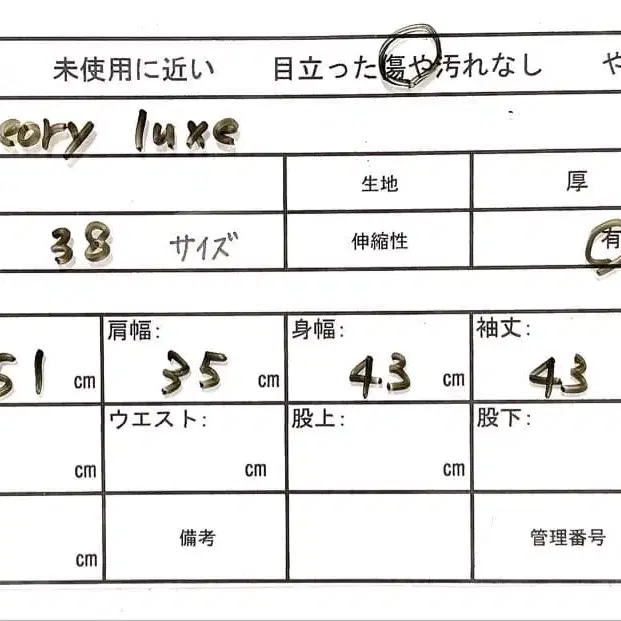 未使用に近い 目立った傷や汚れなし や
eory luxe
生地 厚
38 サイズ 伸縮性 有
肩幅: 身幅: 袖丈:
51 cm 35 cm 43 cm 43
ウエスト: 股上: 股下:
cm cm cm
備考 管理番号
cm